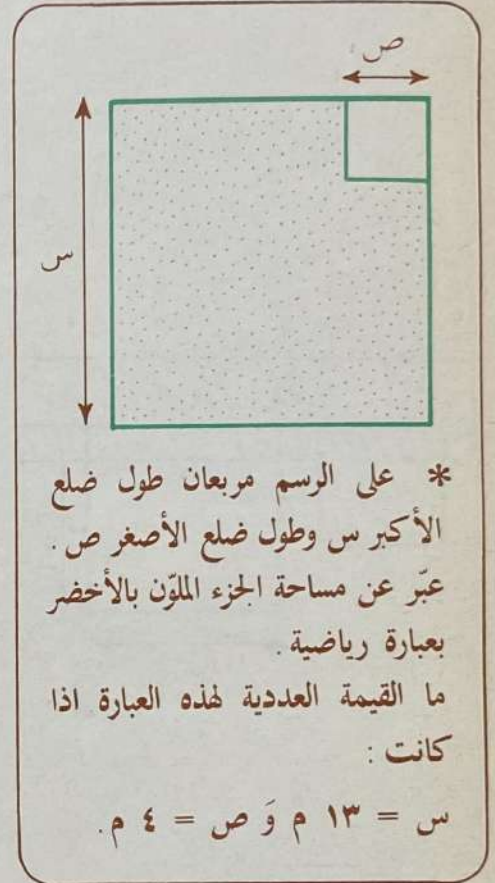 ص
س
* على الرسم مربعان طول ضلع
الأكبر س وطول ضلع الأصغر ص .
عبّر عن مساحة الجزء الملوّن بالأخضر
بعبارة رياضية .
ما القيمة العددية لهذه العبارة اذا
كانت :
س = ١٣ م وَ ص = ٤ م .